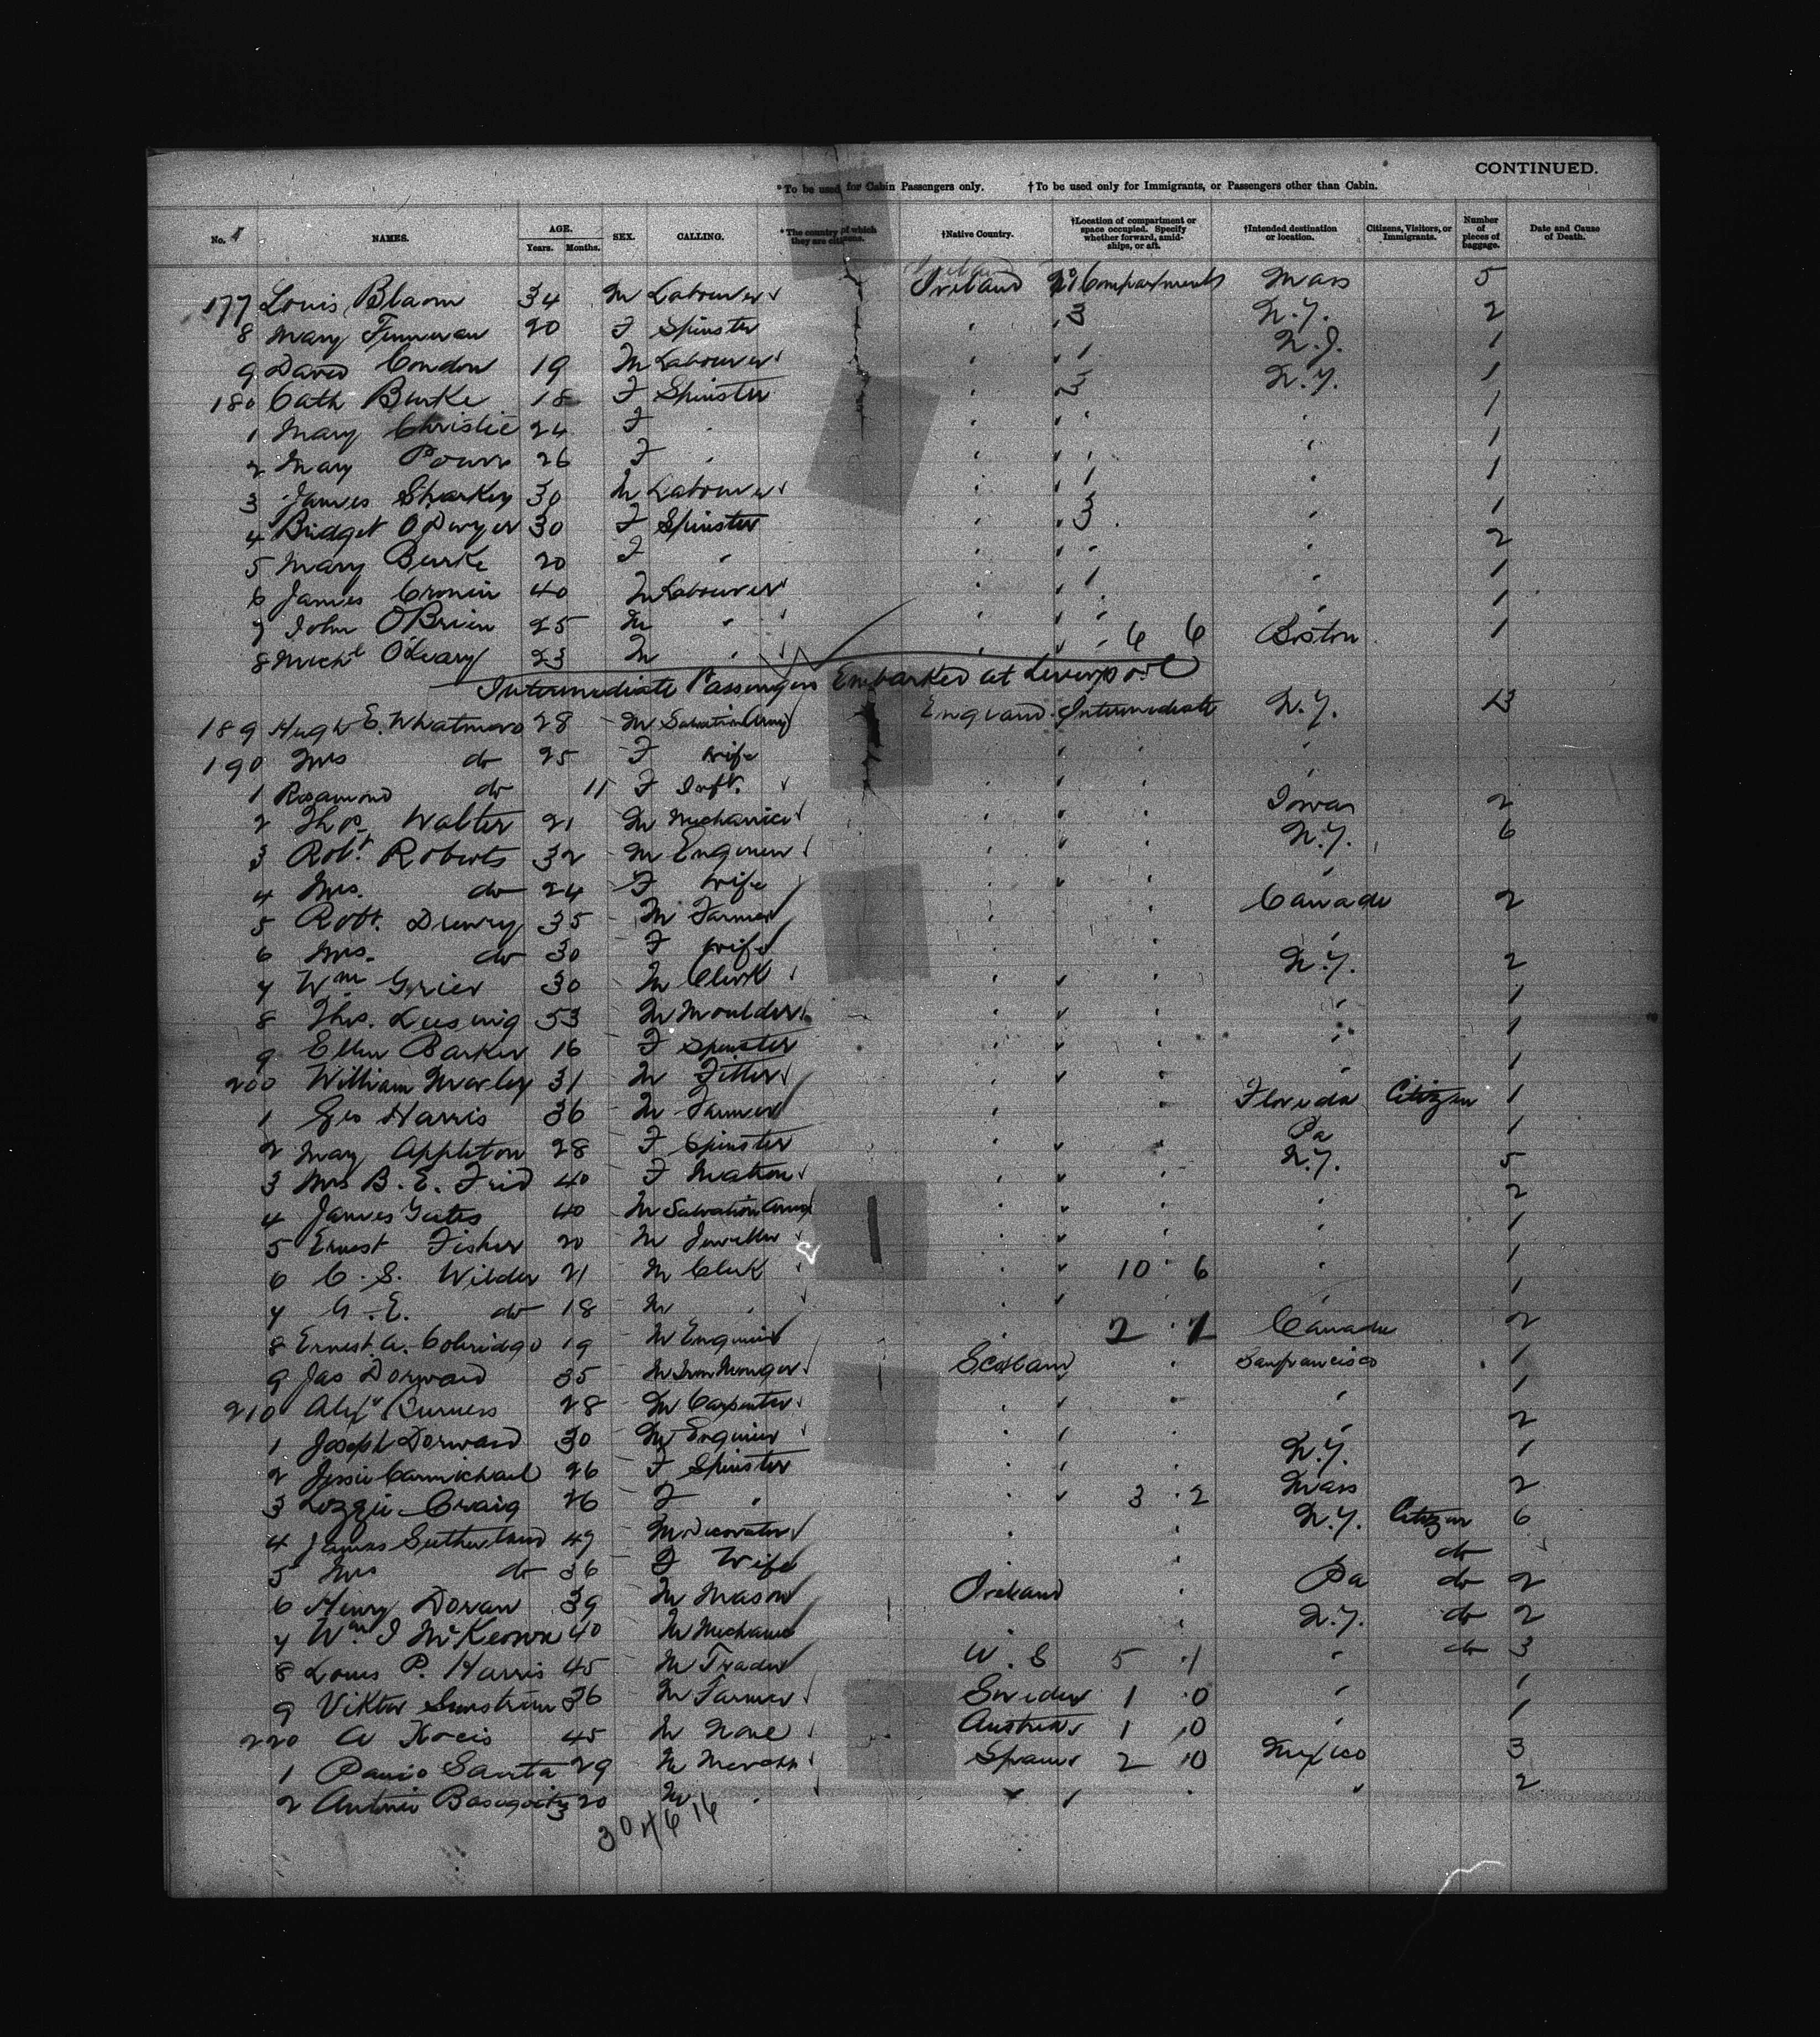 CONTINUED.
*To be used for Cabin Passengers only. †To be used only for Immigrants, or Passengers other than Cabin.
No. NAMES. AGE. Years. Months. SEX. CALLING. *The country of which they are citizens. †Native Country. †Location of compartment or space occupied. Specify whether forward, amidships, or aft. †Intended destination or location. Citizens, Visitors, or Immigrants. Number of pieces of baggage. Date and Cause of Death.
177 Louis Bloom 34 M Labourer Ireland No Compartments Mass 5
8 Mary Finneran 20 F Spinster " " 3 N.Y. 2
9 David Condon 19 M Labourer " " 1 N.J. 1
180 Cath Burke 18 F Spinster " " 3 N.Y. 1
1 Mary Christie 24 F " " " " " 1
2 Mary Power 26 F " " " " " 1
3 James Sharkey 30 M Labourer " " 1 " 1
4 Bridget O'Dwyer 30 F Spinster " " 3 " 1
5 Mary Burke 20 F " " " " " 2
6 James Cronin 40 M Labourer " " 1 " 1
7 John O'Brien 25 M " " " " " 1
8 Michl O'Leary 23 M " " " " 6 6 Boston 1
Intermediate Passengers Embarked at Liverpool
189 Hugh E. Whatmore 28 M Salvation Army England Intermediate N.Y. 13
190 Mrs do 25 F Wife " " "
1 Rosamond do 11 F Inft. " " "
2 Thos Walter 21 M Mechanic " " Iowa 2
3 Robt. Roberts 32 M Engineer " " N.Y. 6
4 Mrs. do 24 F Wife " " "
5 Robt. Drewry 35 M Farmer " " Canada 2
6 Mrs. do 30 F Wife " "
7 Wm Grier 30 M Clerk " " N.Y. 2
8 Thos. 53 M Moulder " " 1
9 Ellen Barker 16 F Spinster " " " 1
200 William Morley 31 M Fitter " " " 1
1 Geo Harris 36 M Farmer " " Florida Citizen 1
2 Mary Appleton 28 F Spinster " " Pa 1
3 Mrs B. E. 40 F Matron " " N.Y. 5
4 James Yates 40 M Salvation Army " " " 2
5 Ernest Fisher 20 M Jeweller " " " 1
6 C. S. Wilder 21 M Clerk " 10 " 6 " 1
7 G. E. do 18 M " " " 1
8 Ernest A. Coleridge 19 M Engineer " 2 " 1 Canada 2
9 Jas Dorward 35 M Iron Monger Scotland " Sanfrancisco 1
210 Alexr Burness 28 M Carpenter " " " 1
1 Joseph Dorward 30 M Engineer " " " 2
2 Jessie Carmichael 26 F Spinster " " N.Y. 1
3 Lizzie Craig 26 F " " 3 " 2 Mass 2
4 James Sutherland 49 M Decorator " " N.Y. Citizen 6
5 Mrs do 36 F Wife " do
6 Henry Doran 39 M Mason Ireland " Pa do 2
7 Wm J McKeown 40 M Mechanic " " N.Y. do 2
8 Louis P. Harris 45 M Trader U.S 5 1 " do 3
9 Viktor 36 M Farmer Sweden 1 0 " 1
220 A Kocis 45 M None Austria 1 0 " 1
1 Santa 29 M Mercht Spain 2 10 Mexico 3
2 Antonio 20 M " " " " 2